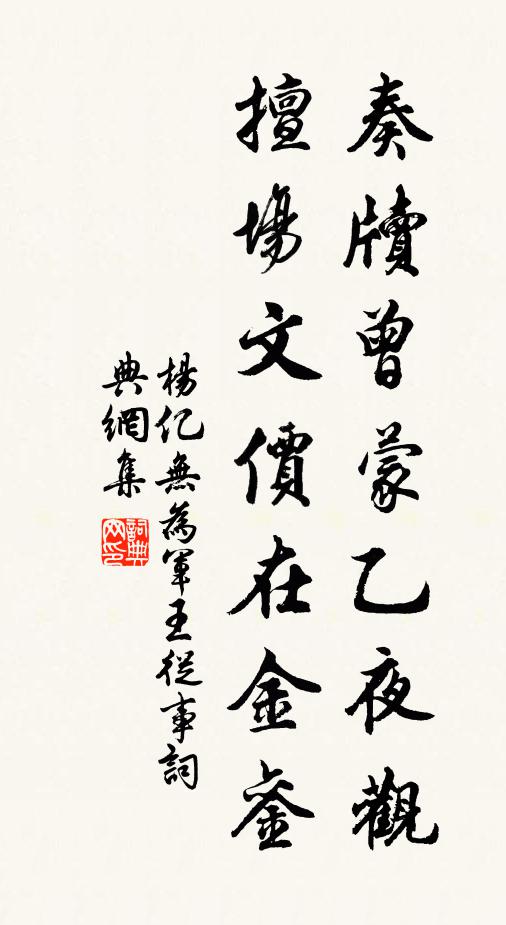 奏牘曾蒙乙夜觀
擅場文價在金鑾
楊億無為軍王從事詞
典網集
詞典网印